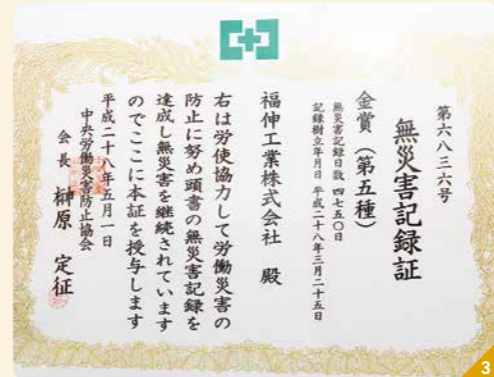 第六八三六号
無災害記録証
金賞（第五種）
無災害記録日数 四七五〇日
記録樹立年月日 平成二十八年三月二十五日
福伸工業株式会社 殿
右は労使協力して労働災害の
防止に努め頭書の無災害記録を
達成し無災害を継続されています
のでここに本証を授与します
平成二十八年五月一日
中央労働災害防止協会
会長 榊原 定征
3